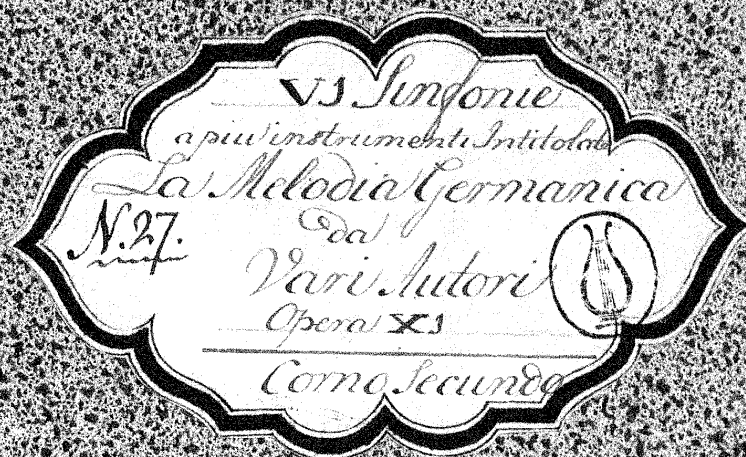 VJ Sinfonie
a piu instrumenti Intitolate
La Melodia Germanica
N.27.
da
Vari Autori
Opera XJ
Corno Secundo